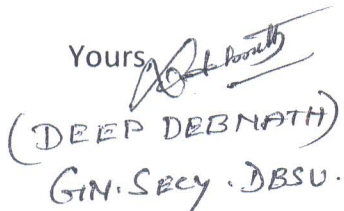 Yours
(DEEP DEBNATH)
GIN. SECY. DBSU.